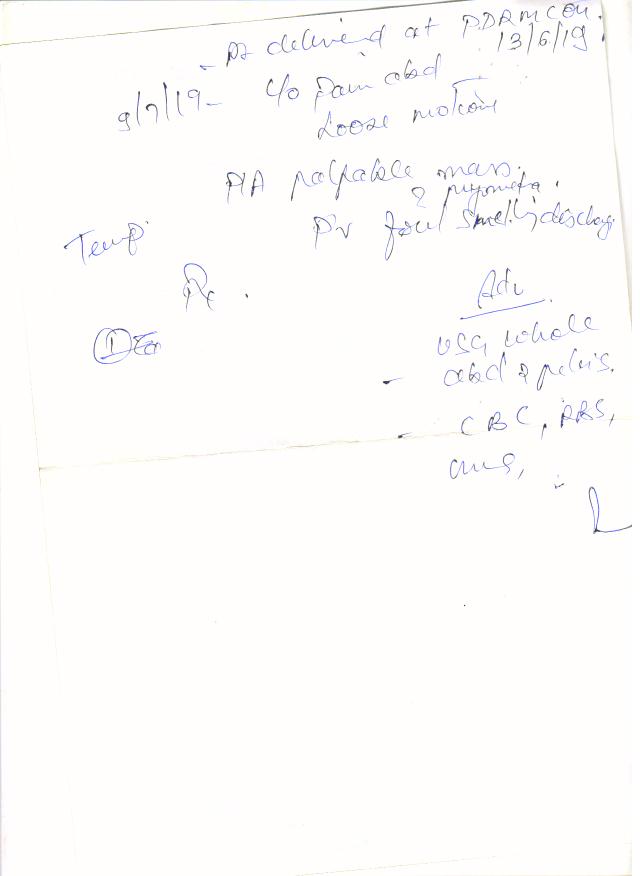 - Pt delivered at PDRMC on
13/6/19.
9/7/19 - c/o Pain abd
Loose motions
P/A palpable mass.
? pyometra.
Temp P/v foul smelling discharge
Rx . Adv
①
USG whole
- abd & pelvis.
- CBC, RBS,